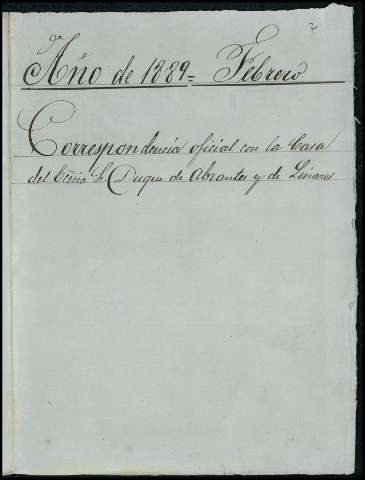 2
Año de 1889= Febrero
Correspondencia oficial con la Casa
del Ecmo Sr. Duque de Abrantes y de Linares